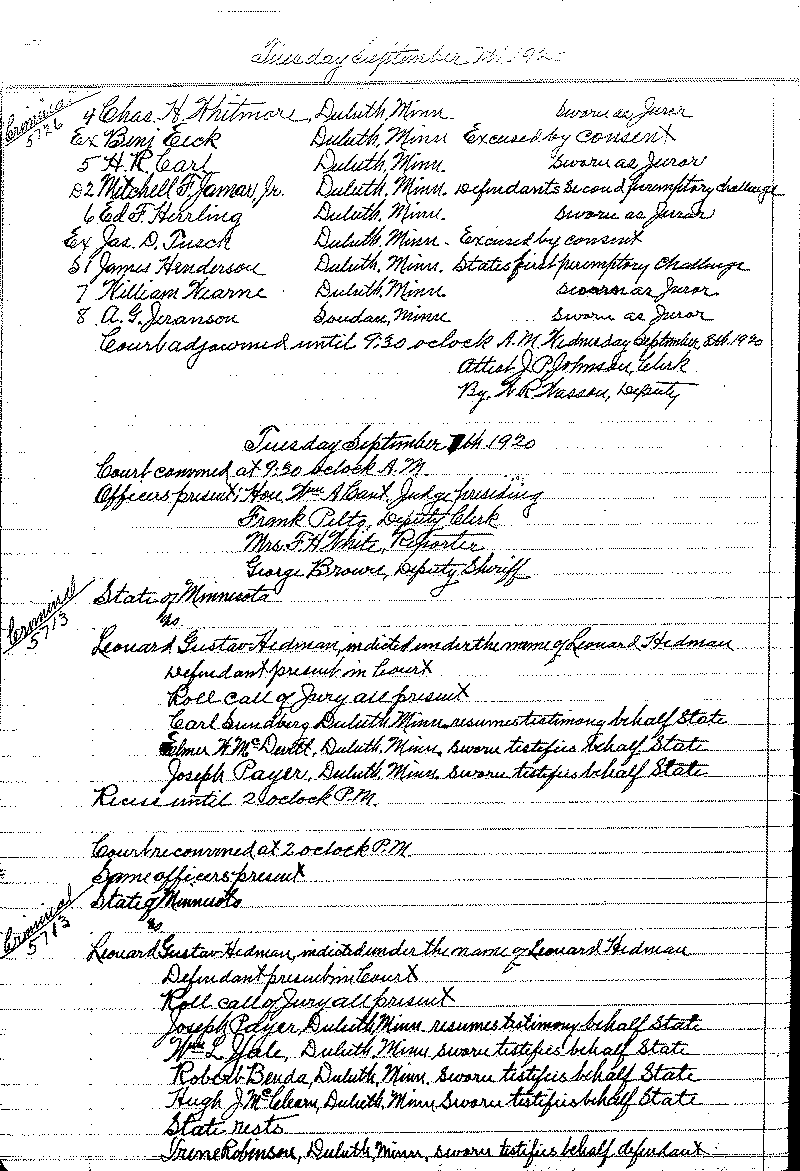 Tuesday September 7th 192
Criminal 5726
4 Chas. H. Whitmore, Duluth, Minn Sworn as Juror
Ex Benj Eick Duluth, Minn Excused by consent
5 H. R. Carl Duluth, Minn. Sworn as Juror
D2 Mitchell F. Jamar, Jr. Duluth, Minn. Defendant's second peremptory challenge
6 Ed F. Herrling Duluth, Minn. Sworn as Juror
Ex Jas. D. Tusch Duluth, Minn - Excused by consent
S1 James Henderson Duluth, Minn. State's first peremptory challenge
7 William Kearne Duluth, Minn. Sworn as Juror
8 A. G. Juranson Soudan, Minn Sworn as Juror
Court adjourned until 9:30 oclock A.M. Wednesday September 8th 1920
Attest J. P. Johnson, Clerk
By. W R Wasson, Deputy
Tuesday September 7th 1920
Court convened at 9:30 oclock A.M.
Officers present; Hon. Wm A Cant, Judge presiding
Frank Pelto, Deputy Clerk
Mrs. F H White, Reporter
George Brown, Deputy Sheriff
Criminal 5713
State of Minnesota
vs.
Leonard Gustav Hedman, indicted under the name of Leonard Hedman
Defendant present in Court
Roll call of Jury all present
Carl Sundberg Duluth, Minn. resumes testimony behalf State
Elmer W. McDevitt, Duluth, Minn. sworn testifies behalf State
Joseph Payer, Duluth, Minn. sworn testifies behalf State
Recess until 2 oclock P.M.
Court reconvened at 2 oclock P.M.
Same officers present
Criminal 5713
State of Minnesota
vs.
Leonard Gustav Hedman, indicted under the name of Leonard Hedman
Defendant present in Court
Roll call of Jury all present
Joseph Payer, Duluth Minn. resumes testimony behalf State
Wm L. Yale, Duluth, Minn. sworn testifies behalf State
Robert Benda, Duluth, Minn. sworn testifies behalf State
Hugh J. McClearn, Duluth, Minn sworn testifies behalf State
State rests
Irene Robinson, Duluth, Minn., sworn testifies behalf defendant